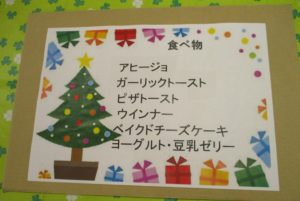 食べ物
アヒージョ
ガーリックトースト
ピザトースト
ウインナー
ベイクドチーズケーキ
ヨーグルト・豆乳ゼリー